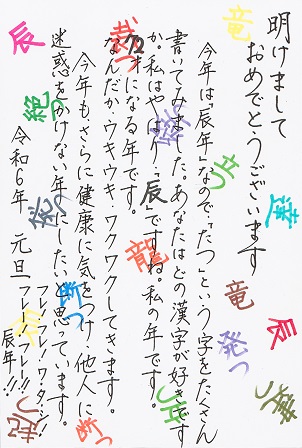 明けまして
おめでとうございます
今年は「辰年」なので「たつ」という字をたくさん
書いてみました。あなたはどの漢字が好きです
か。私はやはり「辰」ですね。私の年です。
72才になる年です。
なんだかウキウキ・ワクワクしてきます。
今年もさらに健康に気をつけ・他人に
迷惑をかけない年にしたいと思っています。
令和6年 元旦
フレ!フレ!ワ・タ・シ!!
フレーフレー辰年!!
竜
達
辰
建つ
立つ
竜
発つ
裁つ
龍
立つ
断つ
断つ
辰
絶つ
起つ